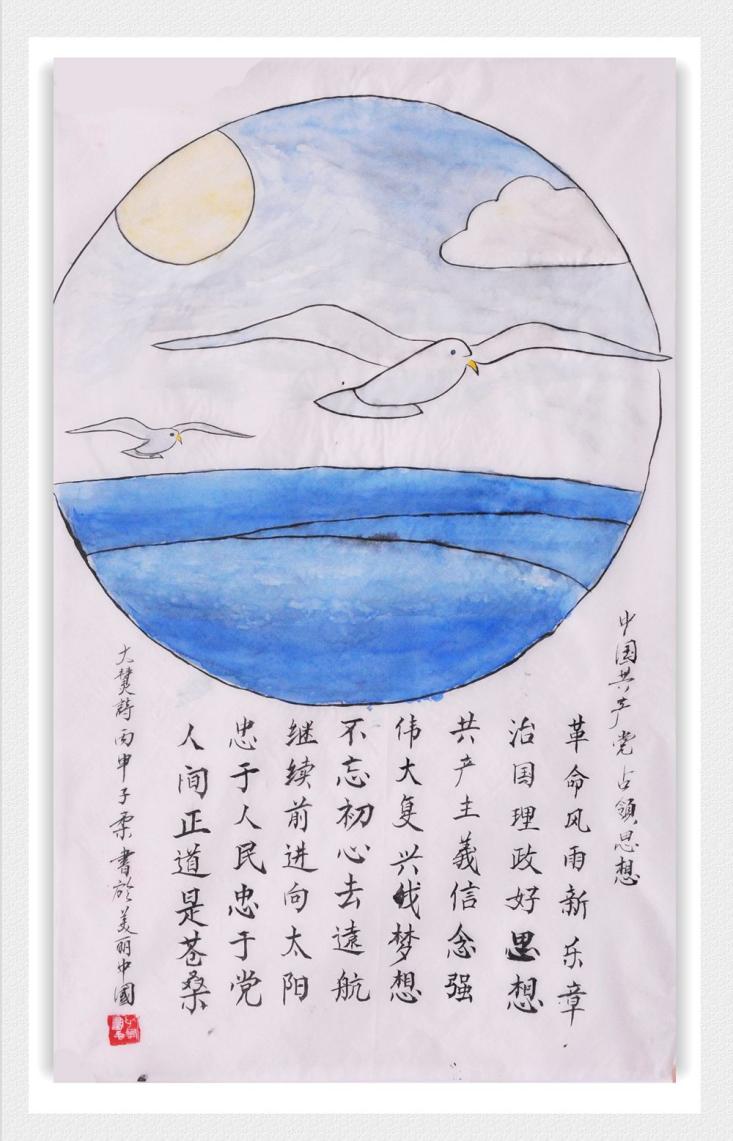 中国共产党占领思想
革命风雨新乐章
治国理政好思想
共产主義信念强
伟大复兴我梦想
不忘初心去遠航
继续前进向太阳
忠于人民忠于党
人间正道是苍桑
大赞詩丙申子柔書於美丽中國